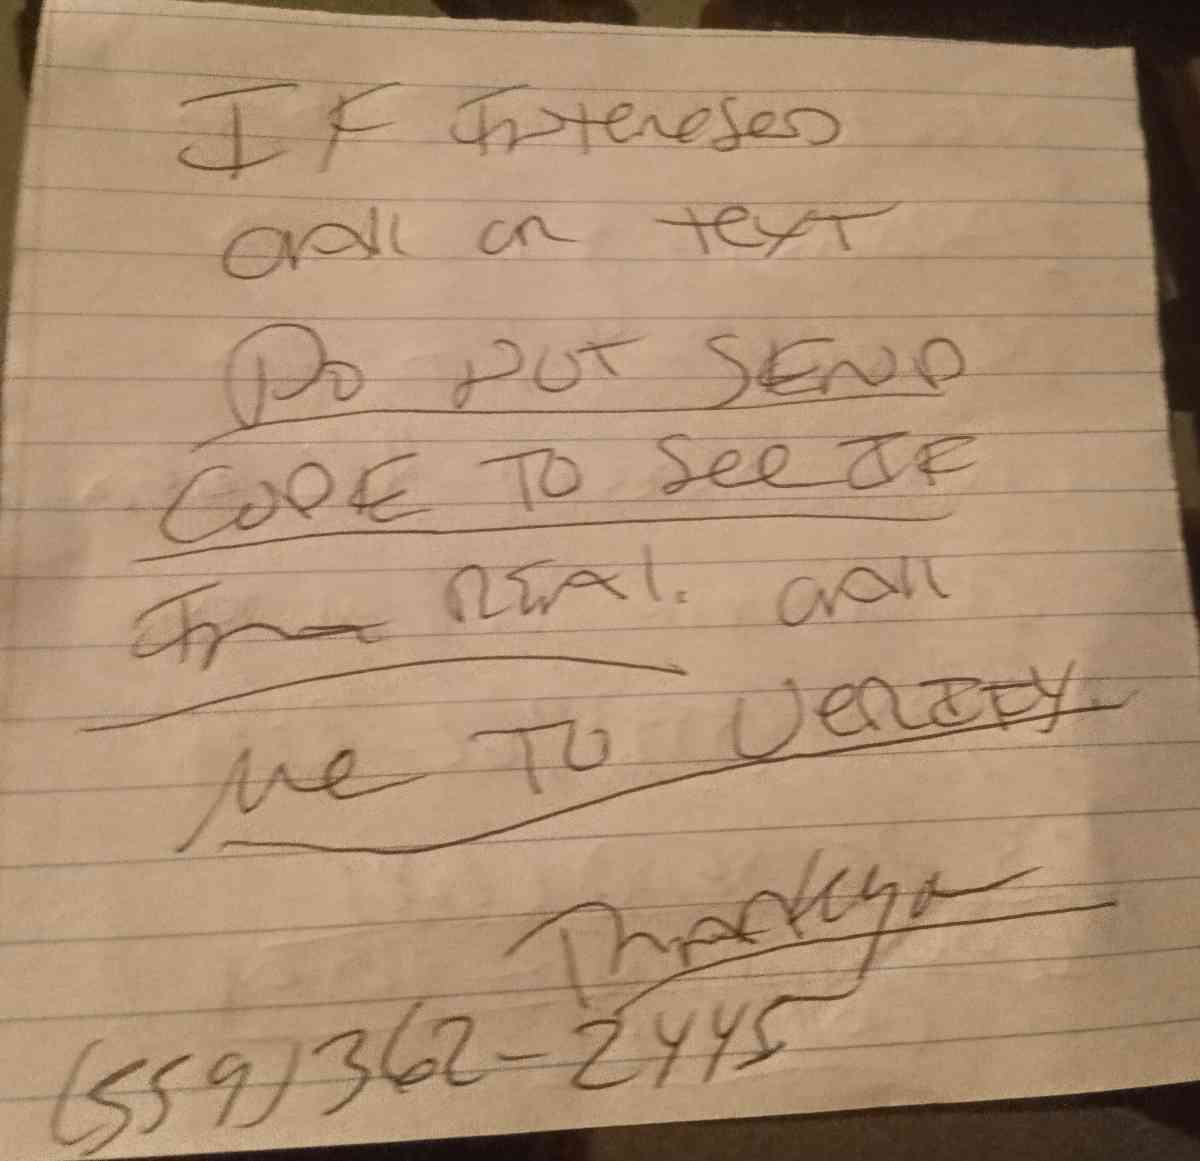 IF Interesed
call or text
Do not SEND
CODE TO See IF
Im REAl. call
Me TO VeRIFY.
Thankyou
(559) 362-2445